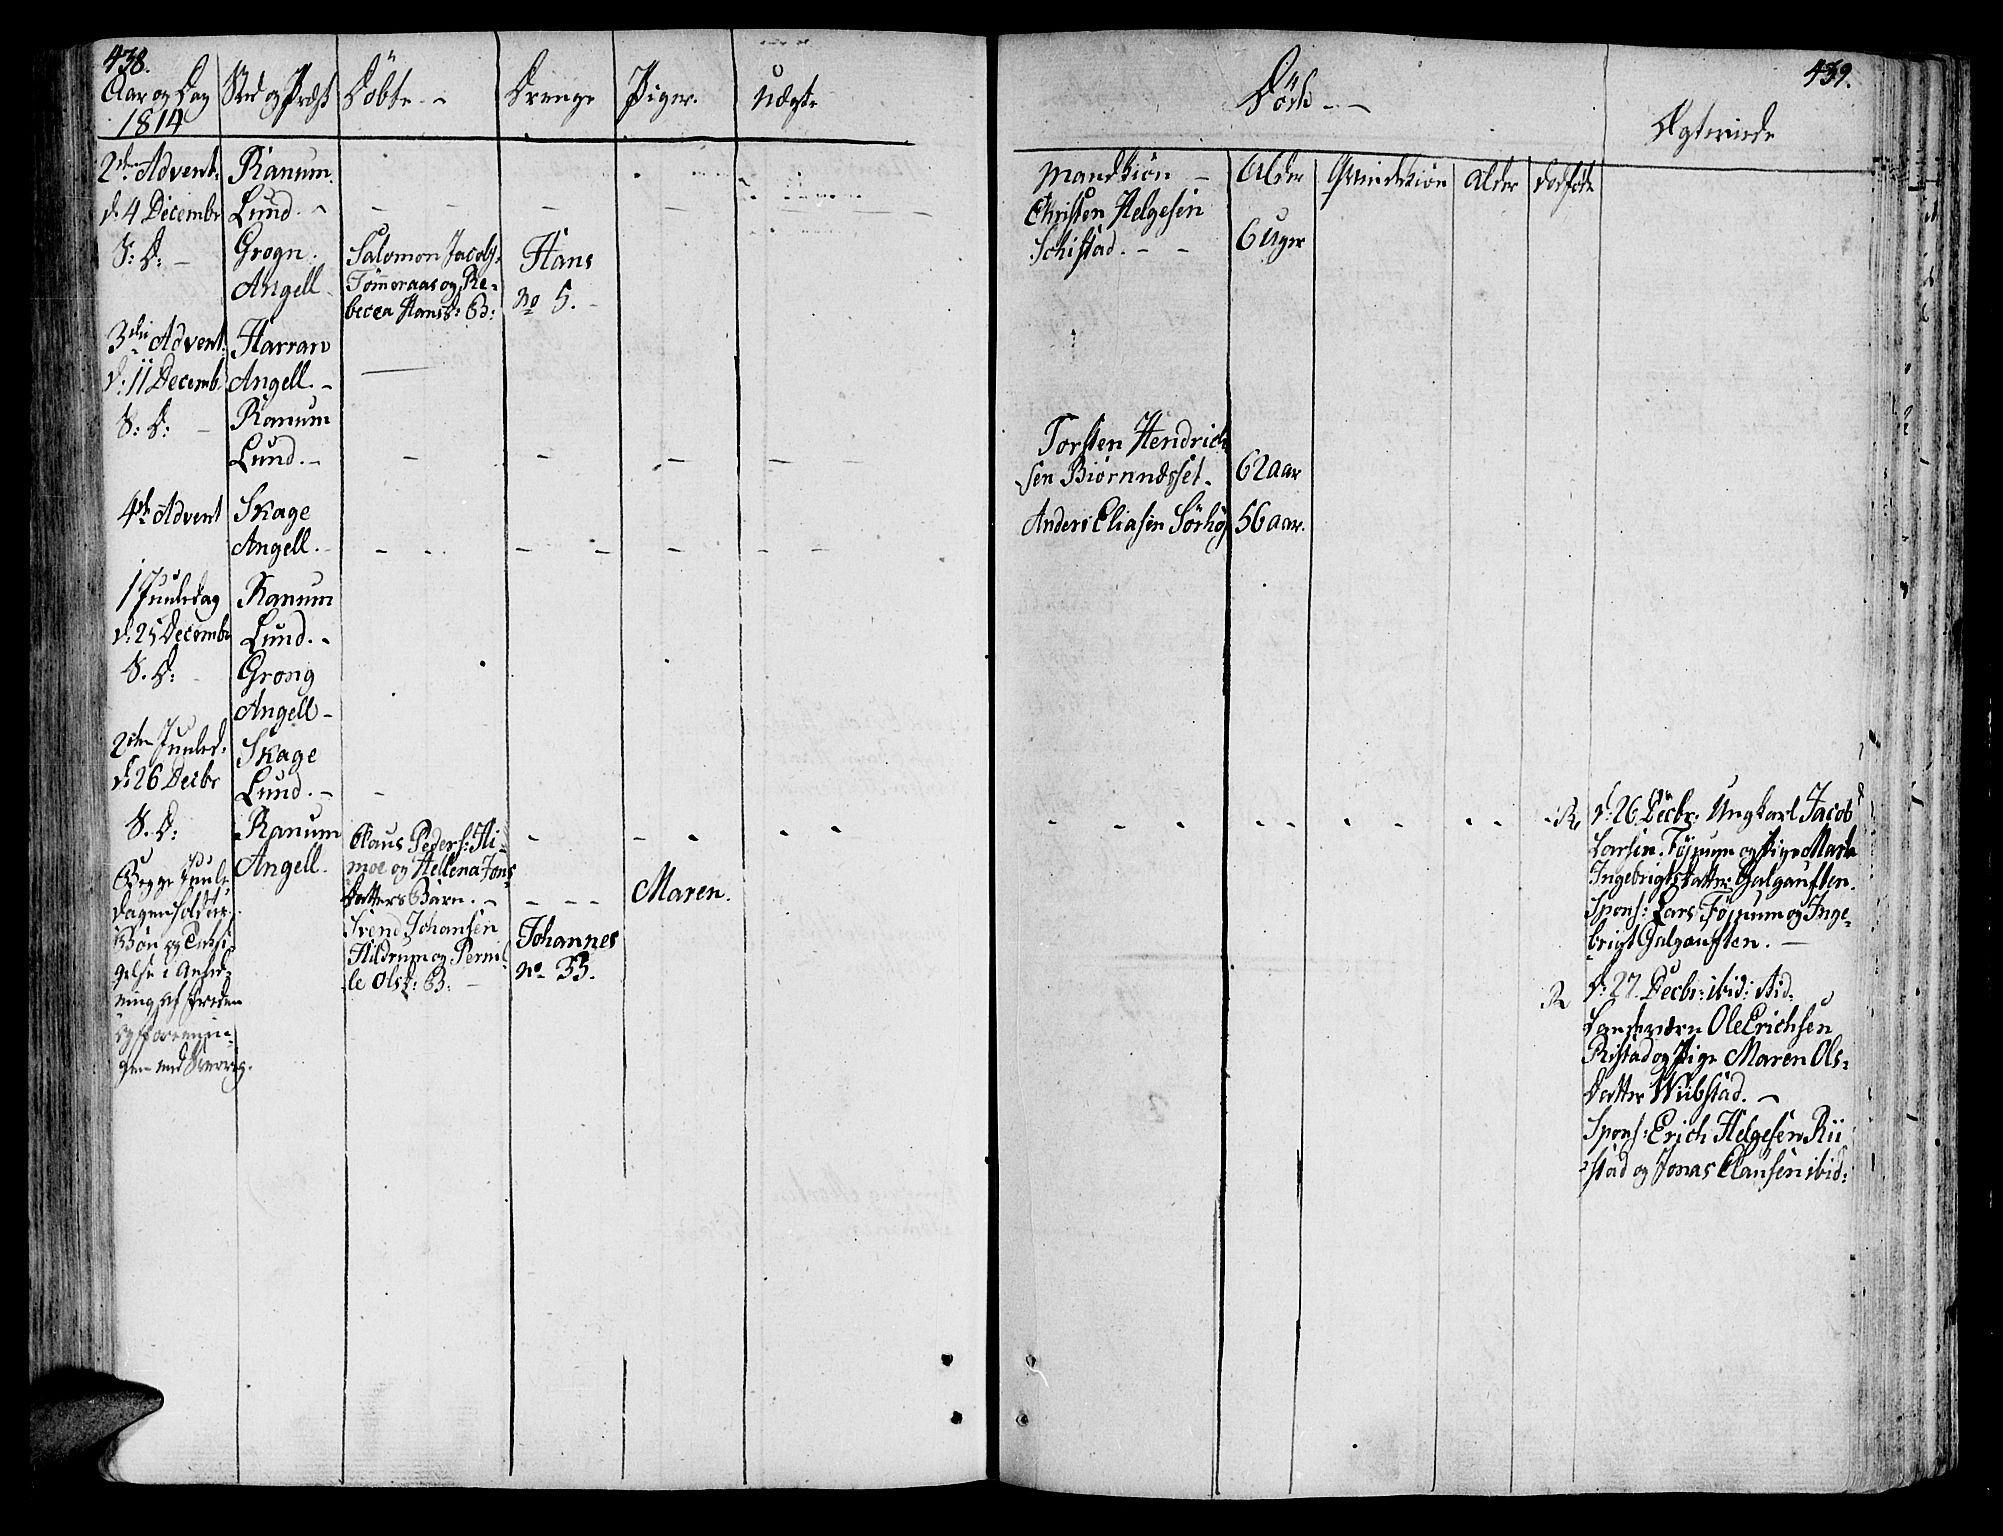 438.
Aar og Dag
1814
Sted og Præst
Döbte - -
Drenge
Piger.
Uægte
2den Advent:
d: 4 Decembr
Ranum.
Lund. -
S: D: -
Grogn.
Angell
Salomon Jacobs:
Tömeraas og Re-
becca Hansd: B:
Hans
No 5. -
3die Advent:
d: 11 Decemb.
Harran
Angell. -
S: D: -
Ranum
Lund. -
4de Advent
Skage
Angell. -
1 Juuledag
d: 25 Decembr
Ranum
Lund. -
S. D: -
Grong
Angell -
2den Juuled:
d: 26 Decbr
Skage
Lund. -
S. D:
Ranum
Angell.
Claus Peders: Hi-
moe og Hellena Jons
Datters Barn. -
Maren.
Svend Johansen
Hildrum og Pernil-
le Olsd: B: -
Johannes
No 33.
Begge Juule-
dagen holdtes
Bøn og
gelse i Anled-
ning af Freden
og Forenin-
gen med Sverrig.
439.
Döde - -
Ægteviede
Mandkiön -
Alder
Qvindekiön
Alder
Dödföde
Christen Helgesen
Schistad. - -
6 Uger
Torsten Hendrich-
sen Biörnndsset -
62 aar
Anders Eliasen Sörhöj
56 aar.
R
d: 26 Decbr. Ungkarl Jacob
Larsen Föjnum og Pige Marta
Ingebrigtsdatter Galgauften.
Spons: Lars Föjnum og Inge-
brigt Galgauften. -
R
d: 27 Decbr: ibid:
Ole Erichsen
Ristad og Pige Maren Ols-
Datter Wiibstad. -
Spons: Erich Helgesen Rii
stad og Jonas Clausen ibid: